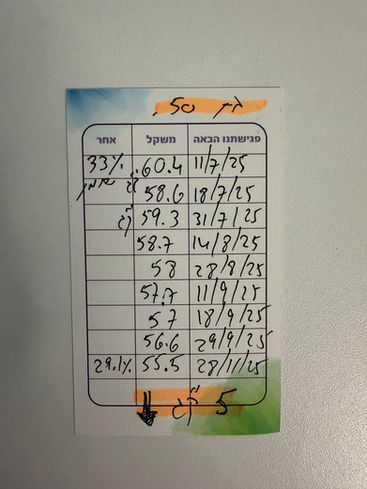 בת 50.
פגישתנו הבאה משקל אחר
11/7/25 60.4 33%
18/7/25 58.6 שומן
31/7/25 59.3 ק"ג
14/8/25 58.7
28/8/25 58
11/9/25 57.7
18/9/25 57
29/9/25 56.6
28/11/25 55.5 29.1%
5 ק"ג